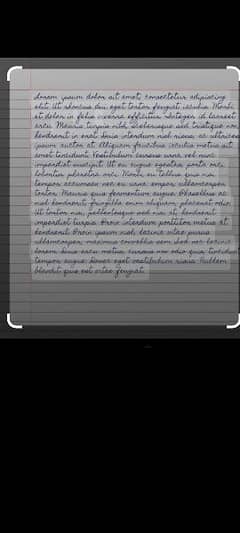 Lorem ipsum dolor sit amet, consectetur adipiscing
elit. Ut rhoncus dui eget tortor feugiat iaculis. Morbi
et dolor in felis viverra efficitur. Integer id laoreet
arcu. Mauris turpis nibh, scelerisque sed tristique non,
hendrerit in erat. Duis interdum nisl risus, ac ultrices
ipsum auctor at. Aliquam faucibus iaculis metus sit
amet tincidunt. Vestibulum cursus urna vel nunc
imperdiet suscipit. Ut eu augue egestas, porta orci,
lobortis pharetra orci. Morbi eu tellus quis nisi
tempor accumsan vel eu urna. ullamcorper
tortor. Mauris quis fermentum augue. Phasellus ac
nisl hendrerit, fringilla enim aliquam, placerat odio.
Ut tortor nisi, pellentesque sed nisi at, hendrerit
imperdiet turpis. Proin interdum porttitor metus at
hendrerit. Proin ipsum nisl, lacinia vitae purus
ullamcorper, maximus convallis sem. Sed nec lacinia
lorem. Duis arcu metus, cursus non odio quis, tincidunt
tempor augue. Donec eget vestibulum risus. Nullam
blandit quis est vitae feugiat.